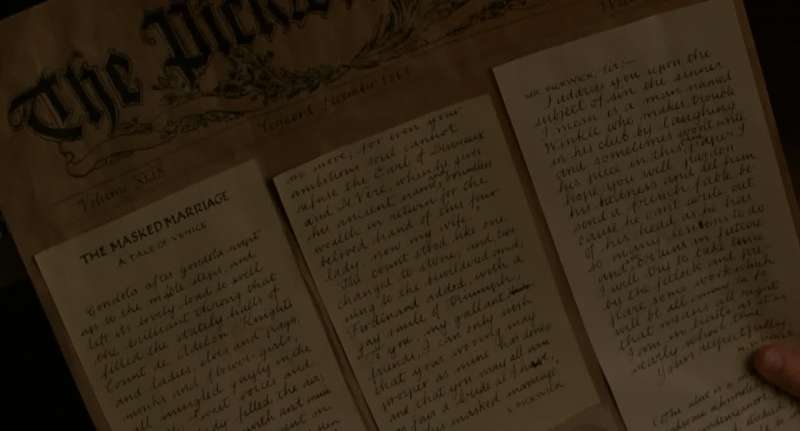 The Pickw
Volume XLIX
Vincent
THE MASKED MARRIAGE
A TALE OF VENICE
Gondola after gondola swept
up to the marble steps, and
left its lovely load to swell
the brilliant throng that
filled the stately halls of
Count de Adelon. Knights
and ladies, elves and pages,
monks and flower-girls,
all mingled gaily in the
Sweet voices and
filled the air,
mirth and music
no more, for even your
ambitious soul cannot
refuse the Earl of Devereux
and De Vere, when he gives
his ancient name and boundless
wealth in return for the
beloved hand of this fair
lady, now my wife.
The count stood like one
changed to stone, and tur
ning to the bewildered crowd,
Ferdinand added, with a
gay smile of triumph,
"To you, my gallant
friends, I can only wish
that your wooing may
prosper as mine has done
and that you may all win
as fair a bride as I have,
by this masked marriage
S. PICKWICK
MR. PICKWICK, SIR:—
I address you upon the
subject of sin the sinner
I mean is a man named
Winkle who makes trouble
in his club by laughing
and sometimes wont write
his piece in this fine paper I
hope you will pardon
his badness and let him
send a french fable be
cause he cant write out
of his head as he has
so many lessons to do
and brains in future
I will try to take time
by the fetlock and pre
pare some work which
will be all commy la fo
that means all right
I am in haste as it is
nearly school time
Yours respectfully